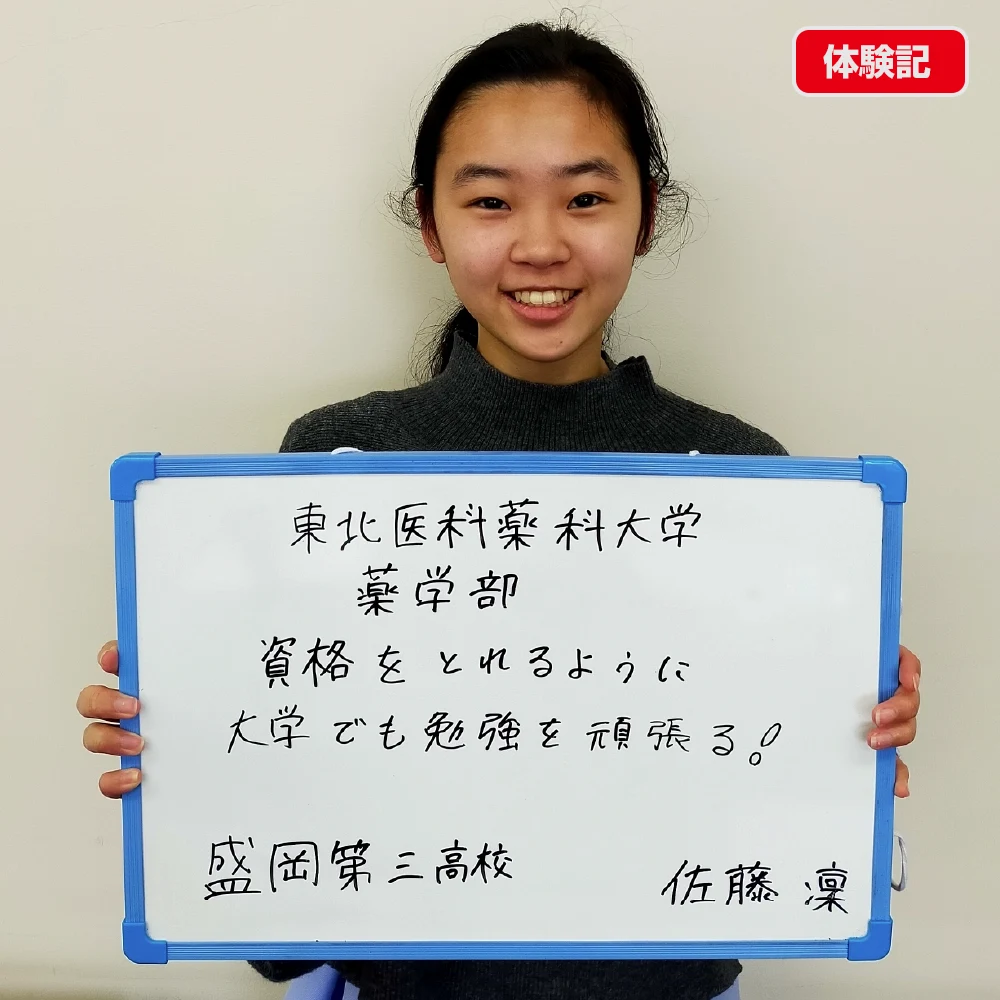 体験記
東北医科薬科大学
薬学部
資格をとれるように
大学でも勉強を頑張る!
盛岡第三高校
佐藤 凜